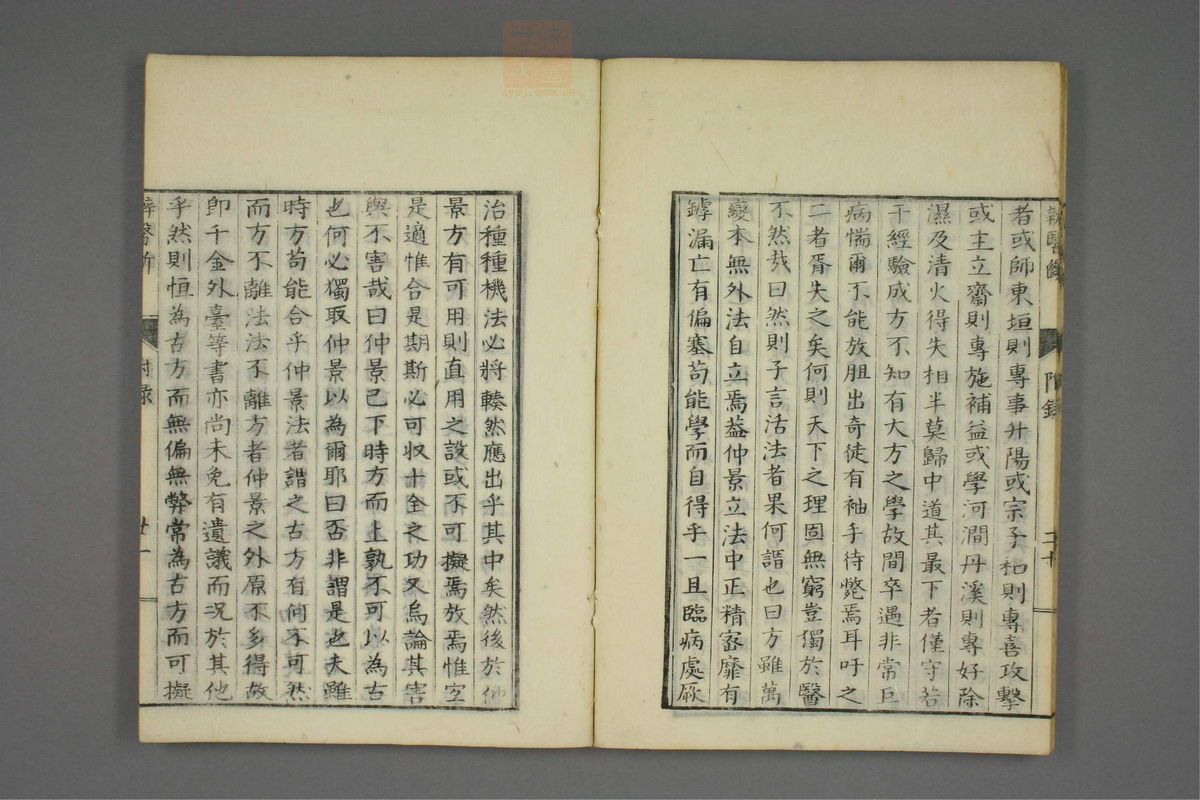 者或師東垣則專事升陽或宗子和則專喜攻擊
或主立齋則專施補益或學河澗丹溪則專好除
濕及清火得失相半莫歸中道其最下者僅守若
干經驗成方不知有大方之學故間卒遇非常巨
病惴爾不能放胆出奇徒有袖手待斃焉耳吁之
二者胥失之矣何則天下之理固無窮豈獨於醫
不然哉曰然則子言活法者果何謂也曰方雖萬
變本無外法自立焉葢仲景立法中正精密靡有
罅漏亡有偏塞苟能學而自得乎一旦臨病處厥
附錄
二十
治種種機法必將輳然應出乎其中矣然後於仲
景方有可用則直用之設或不可擬焉放焉惟宜
是適惟合是期斯必可収十全之功又烏論其害
與不害哉曰仲景已下時方而上孰不可以為古
也何必獨取仲景以為爾耶曰否非謂是也夫雖
時方苟能合乎仲景法者謂之古方有何不可然
而方不離法法不離方者仲景之外原不多得故
卽千金外臺等書亦尚未免有遺議而况於其他
乎然則恒為古方而無偏無弊常為古方而可擬
附錄
廿一